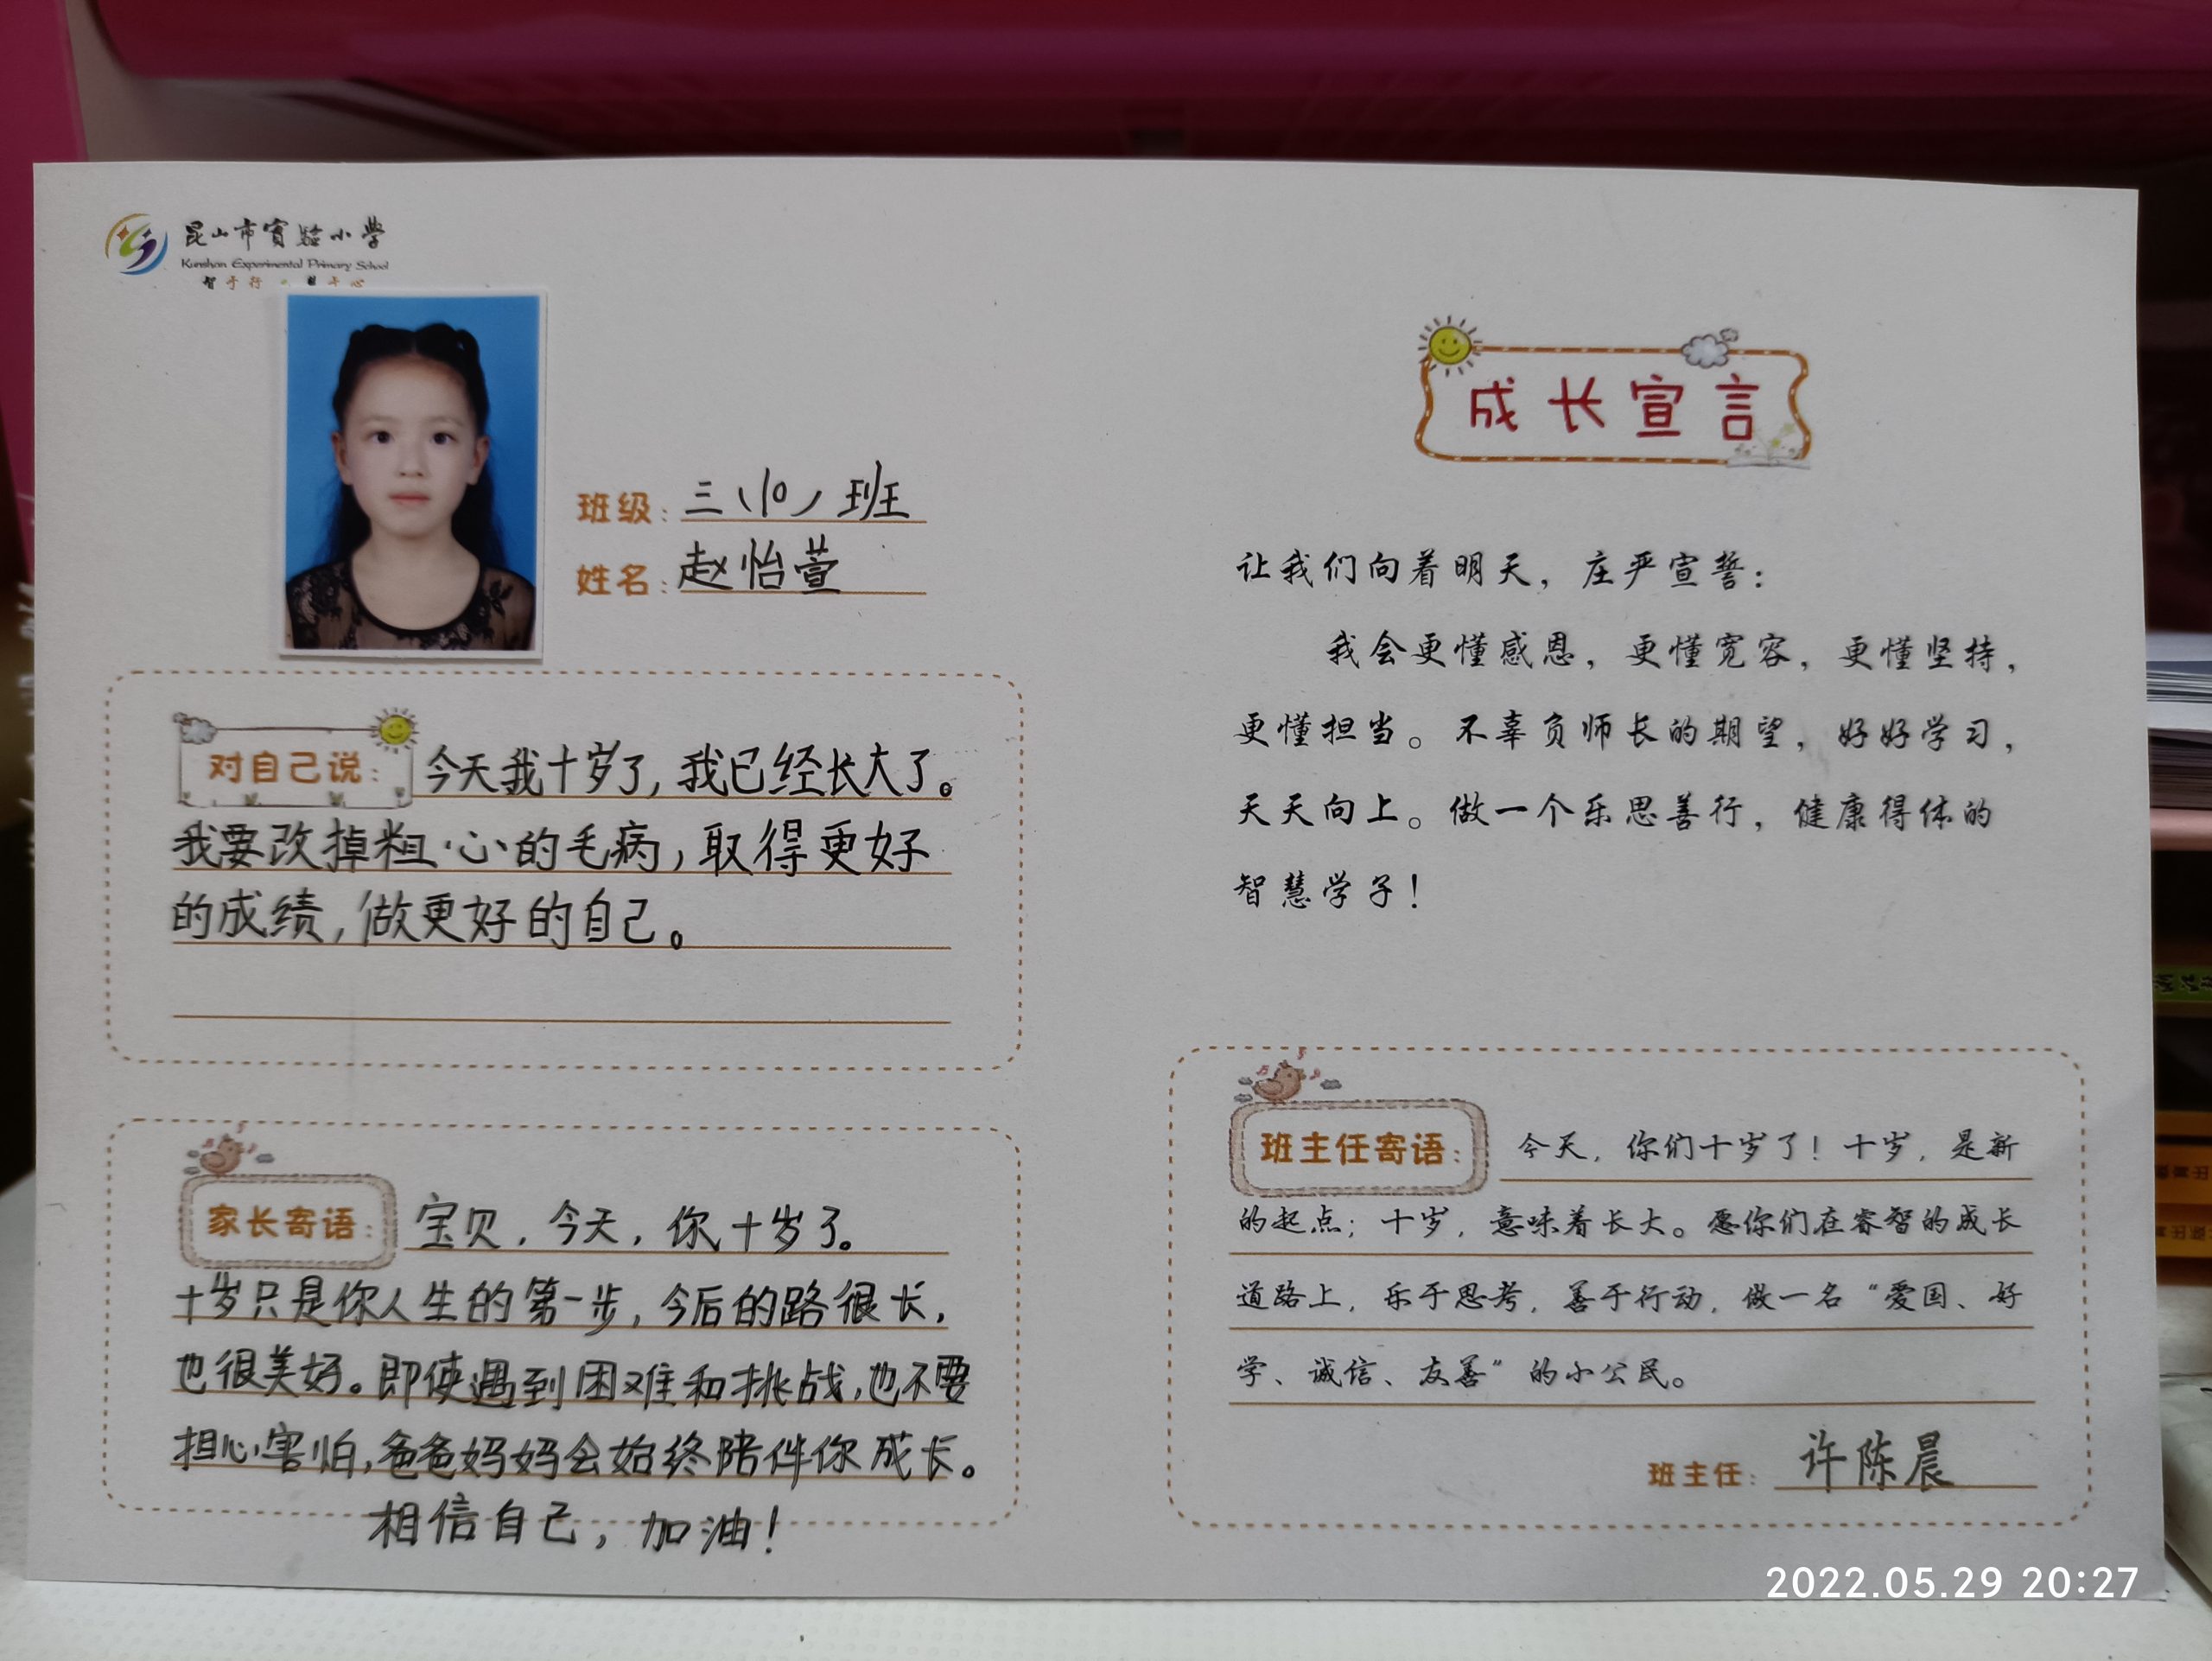 昆山市实验小学
Kunshan Experimental Primary School
智于行
于心
班级：三（10）班
姓名：赵怡萱
对自己说：今天我十岁了，我已经长大了。
我要改掉粗心的毛病，取得更好
的成绩，做更好的自己。
家长寄语：宝贝，今天，你十岁了。
十岁只是你人生的第一步，今后的路很长，
也很美好。即使遇到困难和挑战，也不要
担心害怕，爸爸妈妈会始终陪伴你成长。
相信自己，加油！
成长宣言
让我们向着明天，庄严宣誓：
我会更懂感恩，更懂宽容，更懂坚持，
更懂担当。不辜负师长的期望，好好学习，
天天向上。做一个乐思善行，健康得体的
智慧学子！
班主任寄语：今天，你们十岁了！十岁，是新
的起点；十岁，意味着长大。愿你们在睿智的成长
道路上，乐于思考，善于行动，做一名“爱国、好
学、诚信、友善”的小公民。
班主任：许陈晨
2022.05.29 20:27